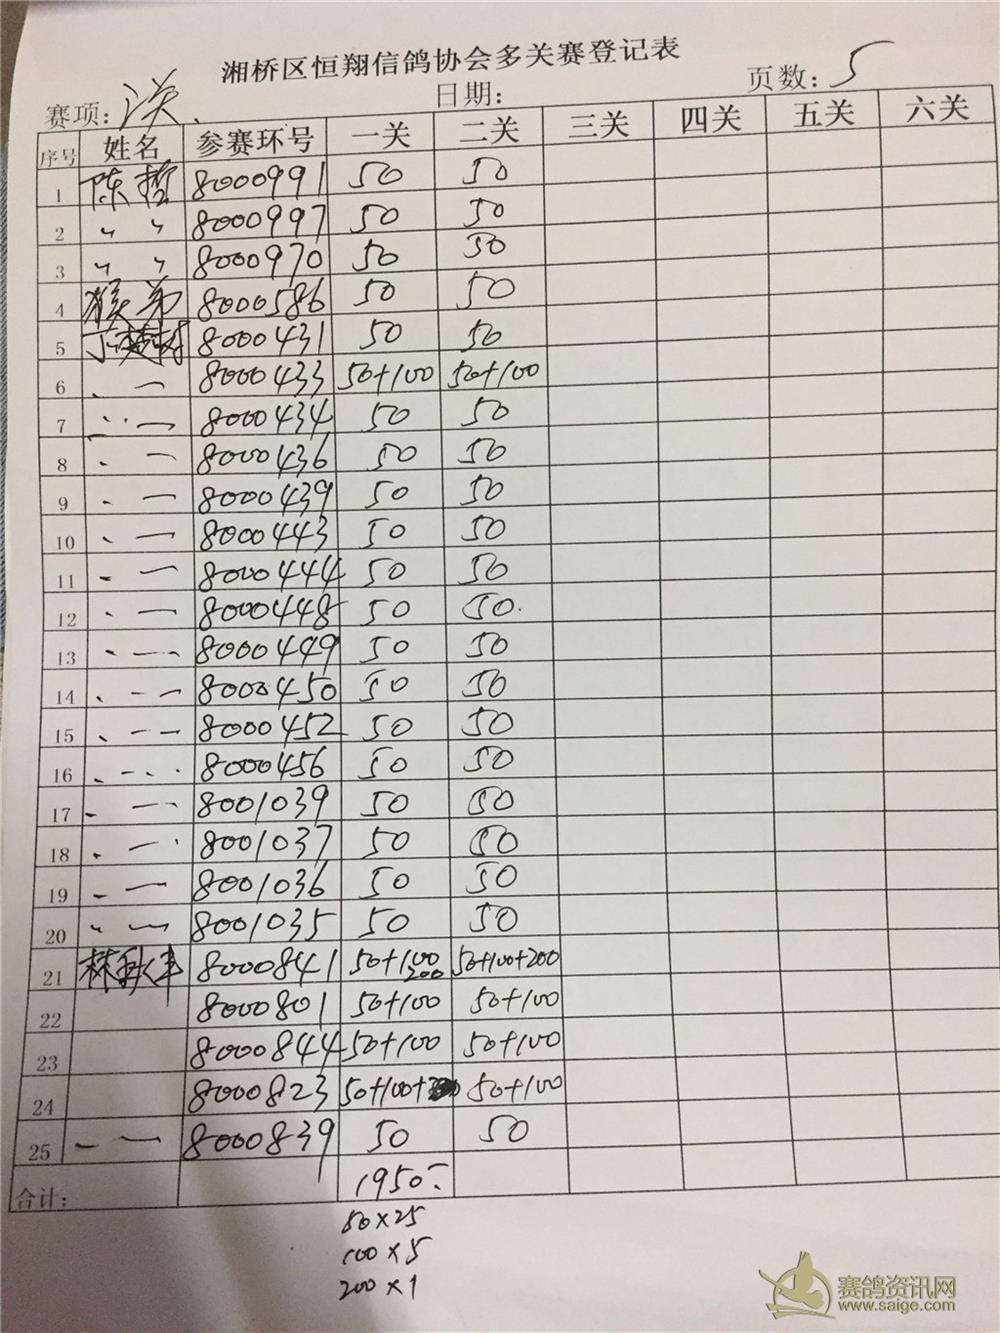 湘桥区恒翔信鸽协会多关赛登记表
赛项： 日期： 页数：5
序号 姓名 参赛环号 一关 二关 三关 四关 五关 六关
1 陈哲 8000991 50 50
2 〃 〃 8000997 50 50
3 〃 〃 8000970 50 50
4 猴弟 8000586 50 50
5 8000431 50 50
6 8000433 50+100 50+100
7 8000434 50 50
8 8000436 50 50
9 8000439 50 50
10 8000443 50 50
11 8000444 50 50
12 8000448 50 50
13 8000449 50 50
14 8000450 50 50
15 8000452 50 50
16 8000456 50 50
17 8001039 50 50
18 8001037 50 50
19 8001036 50 50
20 8001035 50 50
21 8000841 50+100 200 50+100+200
22 8000801 50+100 50+100
23 8000844 50+100 50+100
24 8000823 50+100+ 50+100
25 8000839 50 50
合计： 1950
50×25
100×5
200×1
赛鸽资讯网
www.saige.com